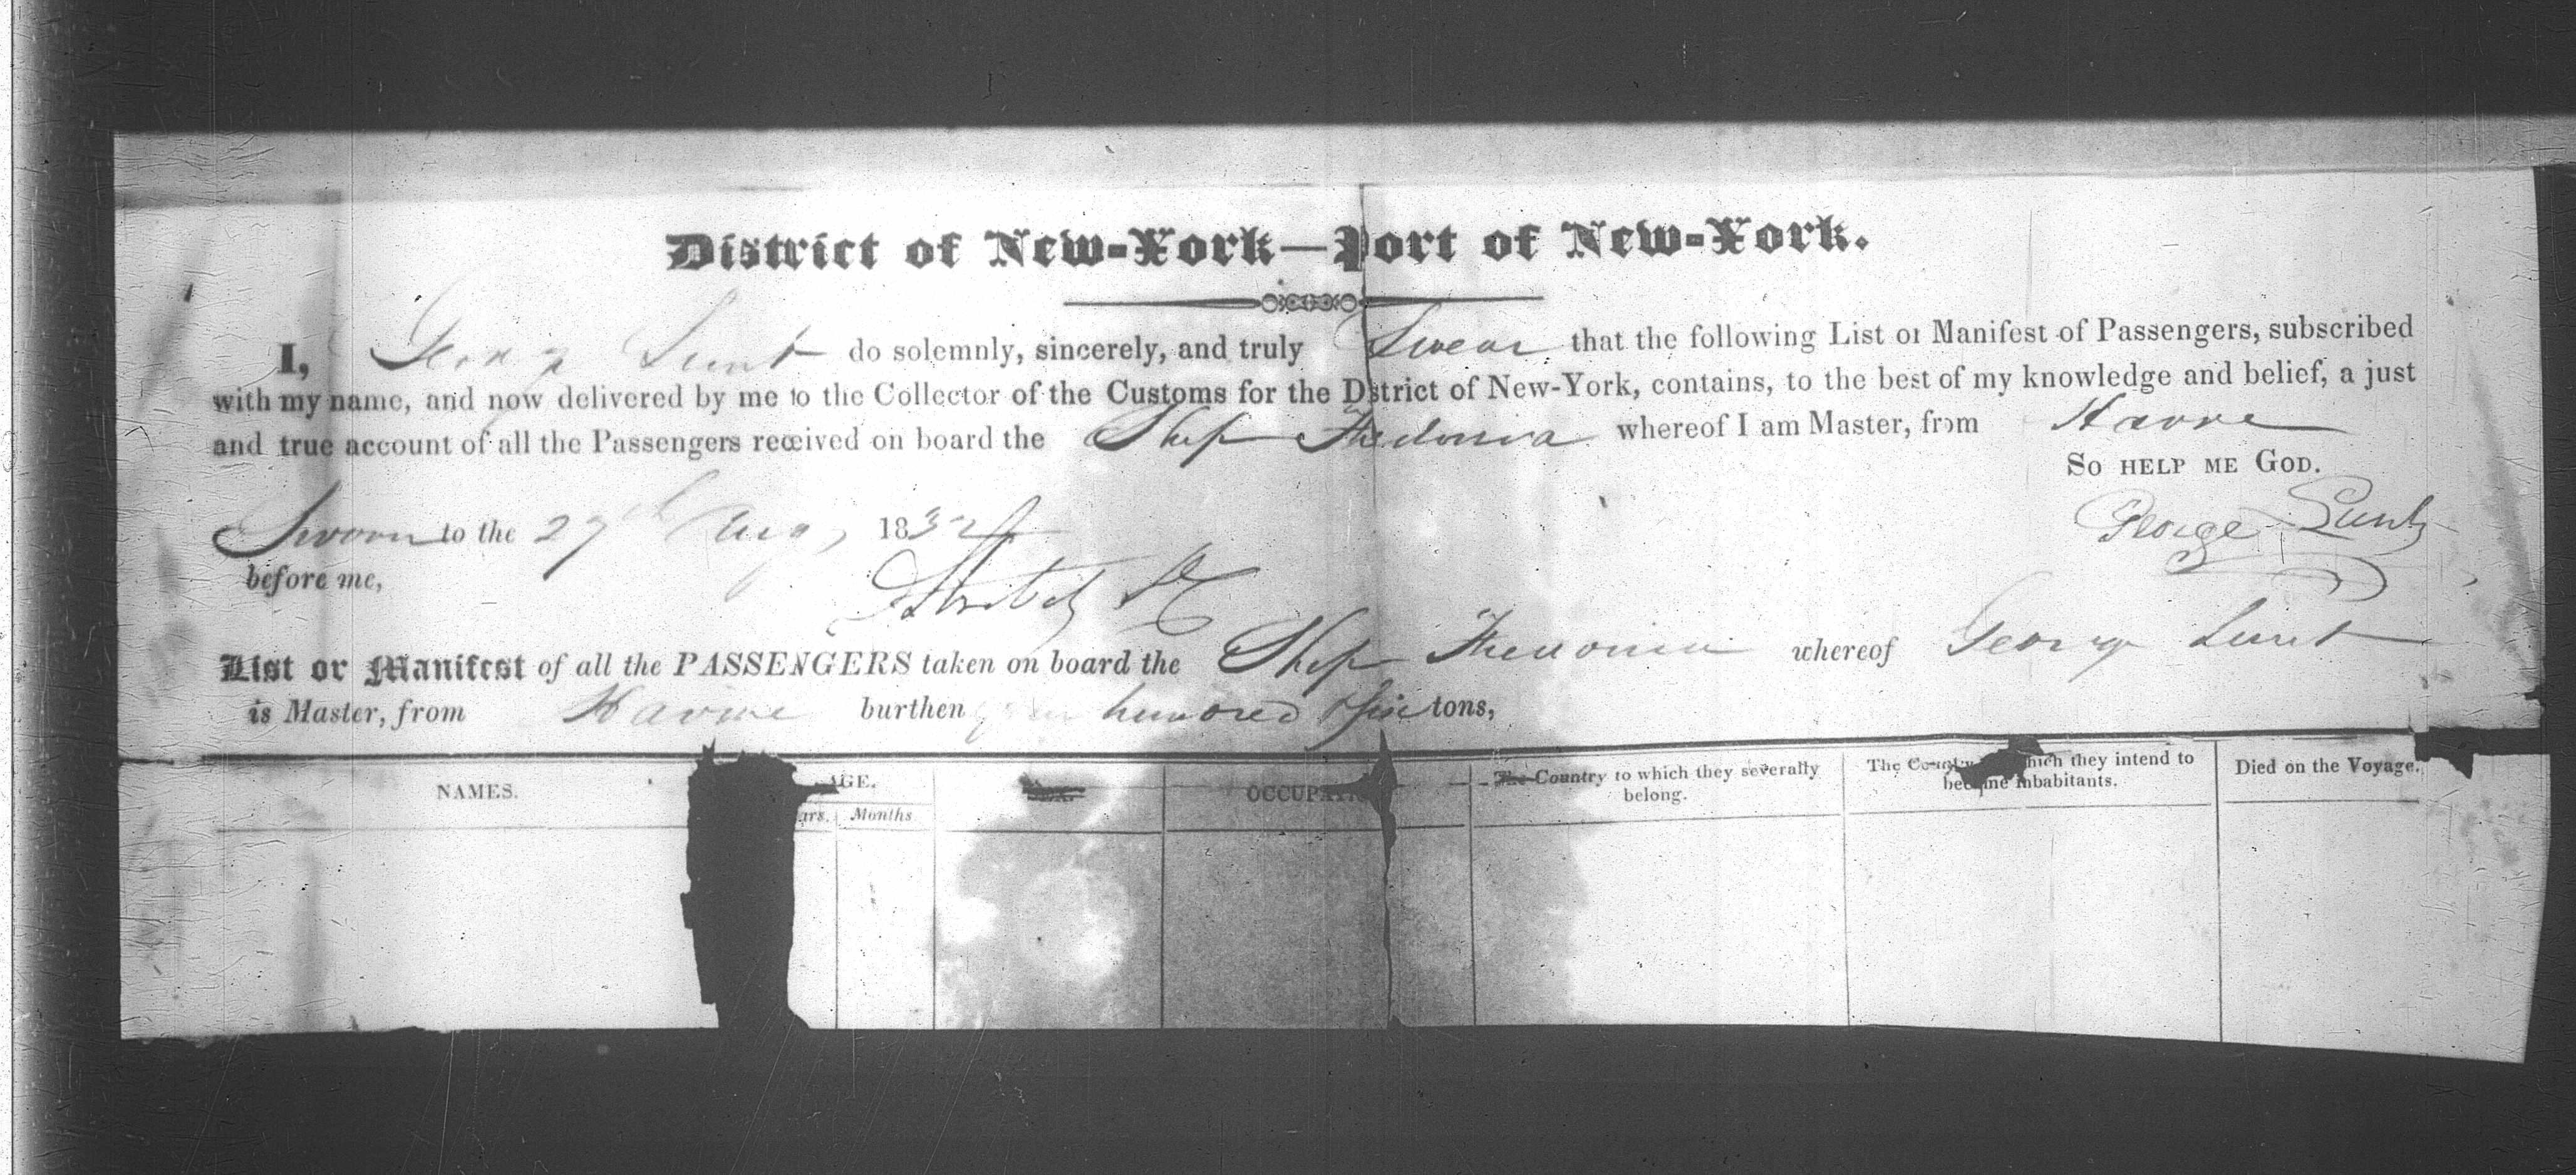 District of New-York—Port of New-York.
I, George Lunt do solemnly, sincerely, and truly Swear that the following List or Manifest of Passengers, subscribed
with my name, and now delivered by me to the Collector of the Customs for the District of New-York, contains, to the best of my knowledge and belief, a just
and true account of all the Passengers received on board the Ship whereof I am Master, from Havre
So help me God.
Sworn to the 27th Aug, 1832
George Lunt
before me,
List or Manifest of all the PASSENGERS taken on board the Ship whereof George Lunt
is Master, from Havre burthen hundred tons,
NAMES. AGE. OCCUPATION The Country to which they severally The Country which they intend to Died on the Voyage.
belong. become inhabitants.
Months